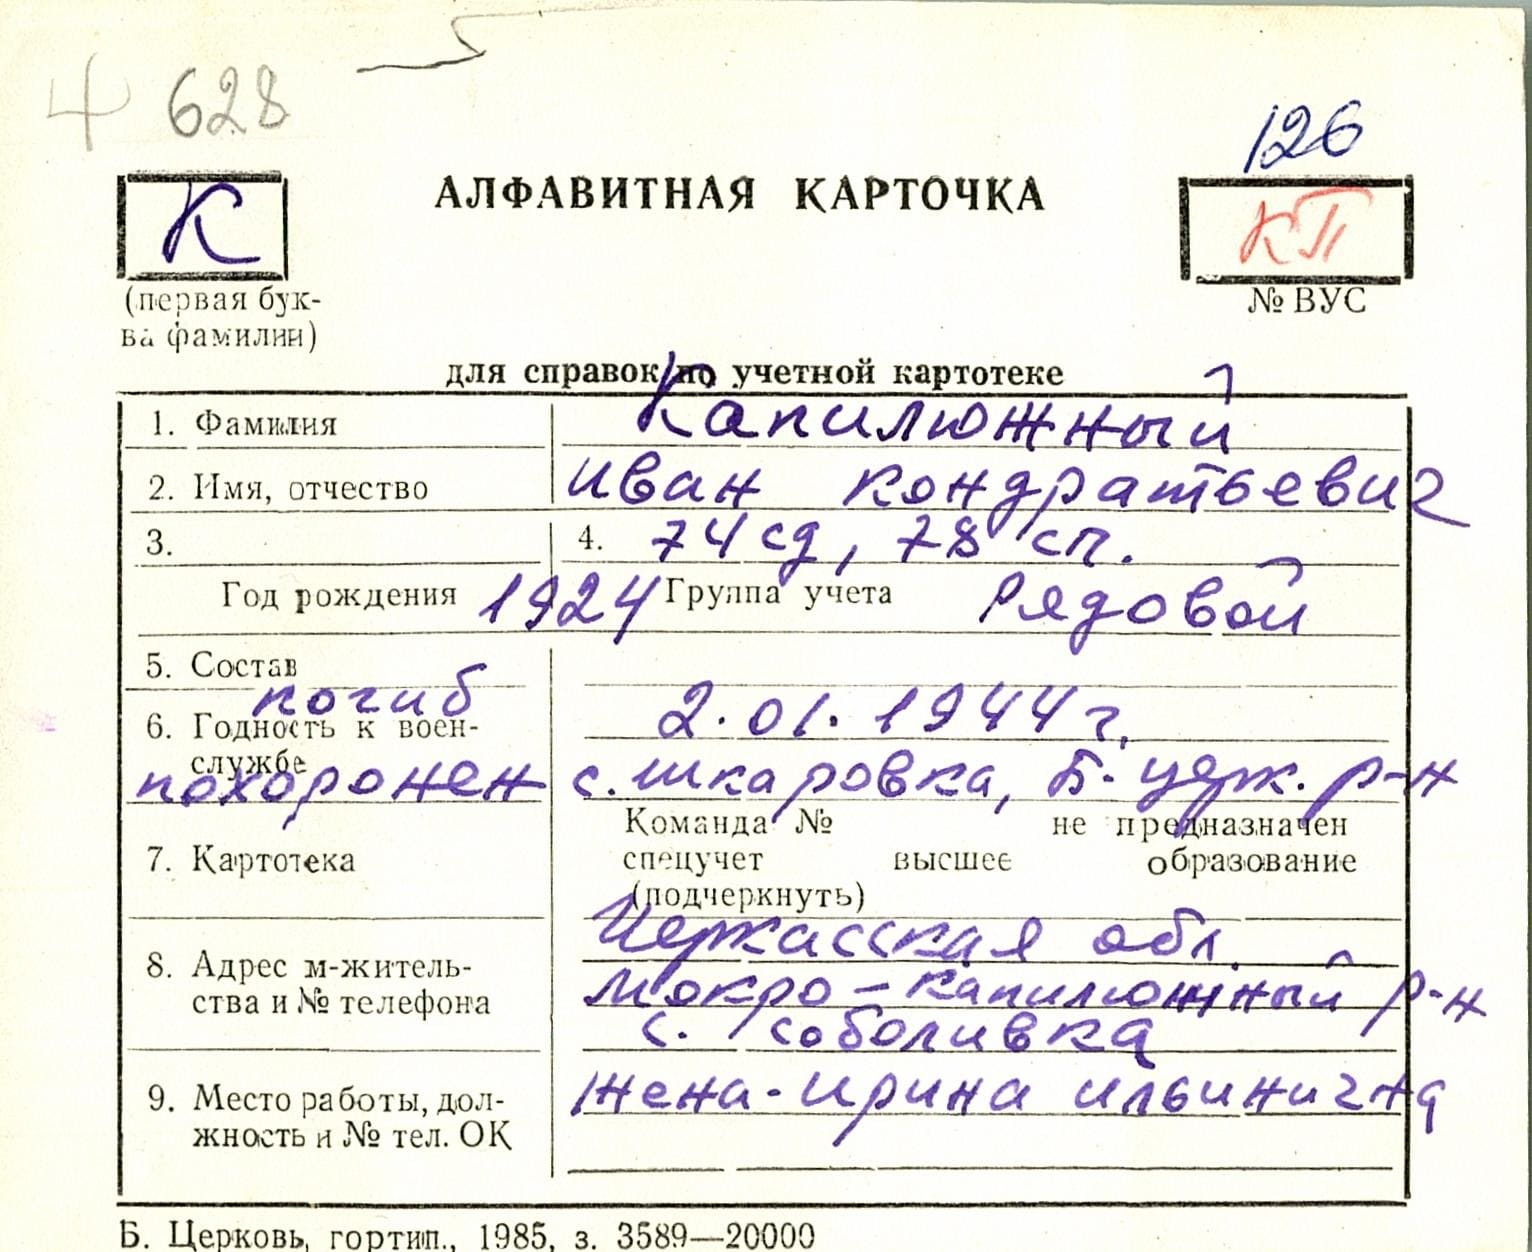 4 628
126
К
АЛФАВИТНАЯ КАРТОЧКА
КП
(первая бук-
ва фамилии)
№ ВУС
для справок по учетной картотеке
1. Фамилия Капилюжный
2. Имя, отчество Иван Кондратьевич
3. 4. 74 сд, 78 сп.
Год рождения 1924 Группа учета Рядовой
5. Состав
погиб 2.01.1944 г.
6. Годность к воен-
службе
похоронен с. Шкаровка, Б-церк. р-н
Команда № не предназначен
7. Картотека спецучет высшее образование
(подчеркнуть)
Черкасская обл.
8. Адрес м-житель-
ства и № телефона Мокро-Капилюжный р-н
с. Соболивка
9. Место работы, дол- жена-Ирина Ильинична
жность и № тел. ОК
Б. Церковь, гортип., 1985, з. 3589—20000